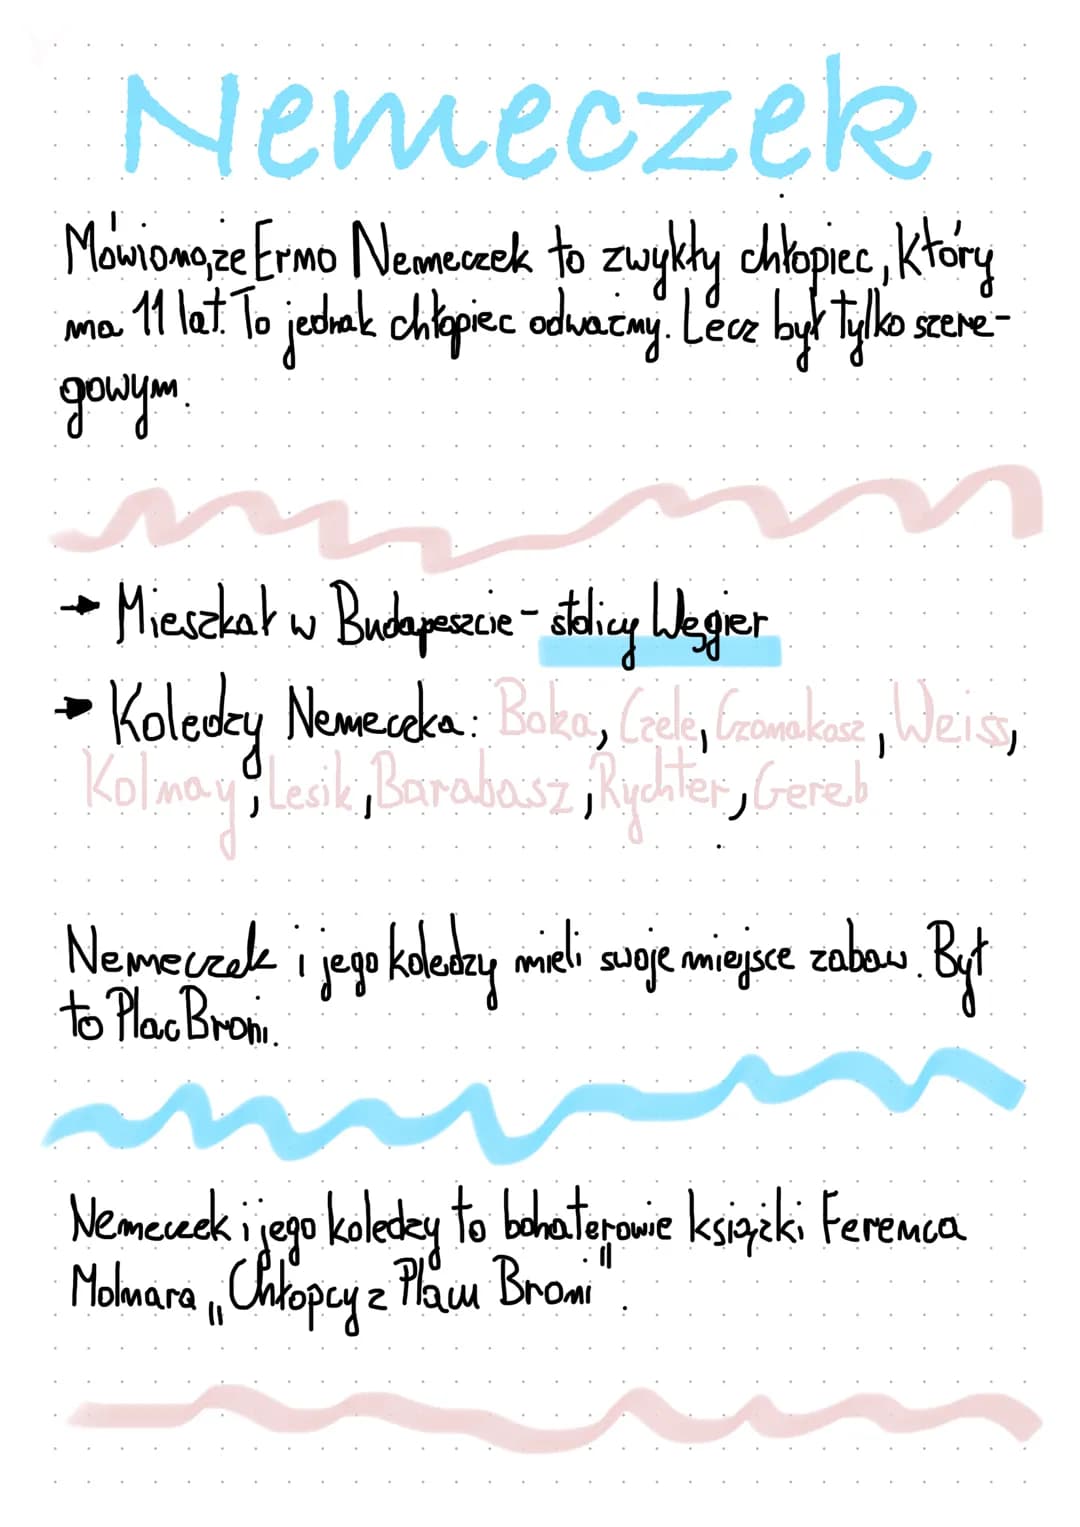 Nemeczek
Mówiono, że Ermo Nemeczek to zwykły chłopiec, który
ma 11 lat. To jednak chłopiec odważny. Lecz był tylko szere-
gowym.
→ Mieszkał w Budapeszcie - stolicy Węgier
→ Koledzy Nemeczka: Boka, Czele, Czonakosz, Weiss,
Kolnay, Lesik, Barabasz, Rychter, Gereb
Nemeczek i jego koledzy mieli swoje miejsce zabaw. Był
to Plac Broni.
Nemeczek i jego koledzy to bohaterowie książki Ferenca
Molnara „Chłopcy z Placu Broni".